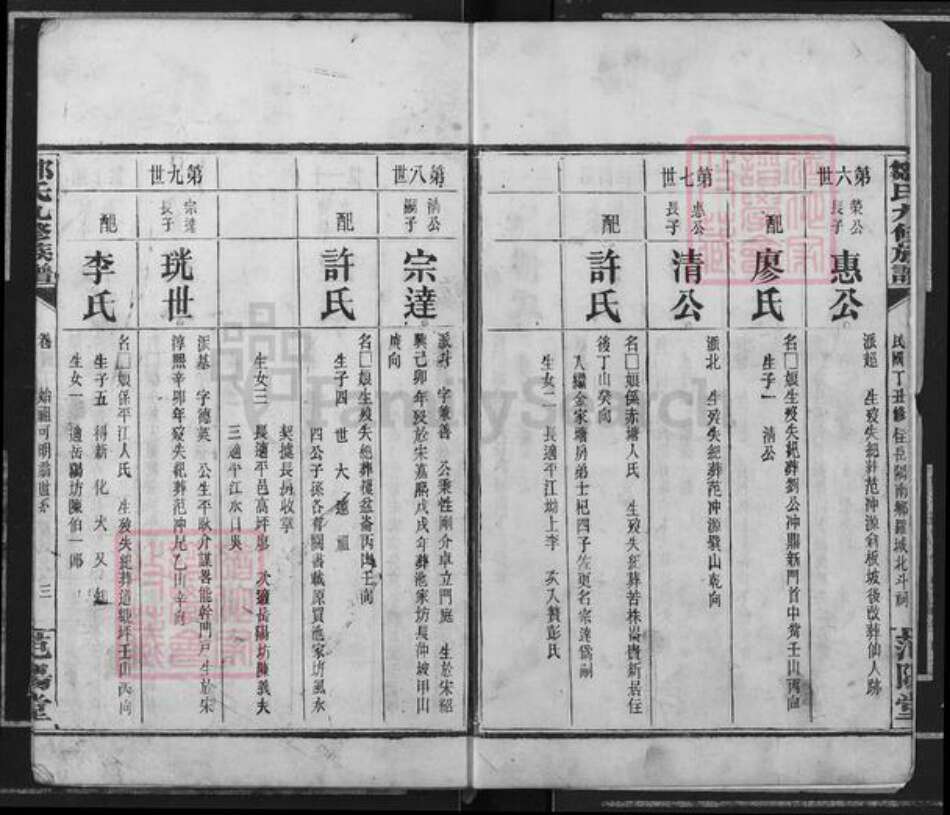 鄒氏九修族譜
民國丁丑修 住長岡南鄉羅城北斗祠
范陽堂
第六世
榮公
長子
惠公
派超 生歿失紀葬范冲源斜板坡後改葬仙人跡
配
廖氏
名□娘生歿失紀葬劉公冲鼎新門首中嘴壬山丙向
生子一 清公
第七世
惠公
長子
清公
派北 生歿失紀葬范冲源巽山乾向
配
許氏
名□娘係赤塘人氏 生歿失紀葬苦株嵛舊新居住
後丁山癸向
入繼金家塘男弟士杞四子佐更名宗達為嗣
生女二 長適平江坳上李 次入贅彭氏
第八世
清公
嗣子
宗達
字兼善 公秉性剛介卓立門庭 生於宋紹
興己卯年歿於宋嘉熙戊戌年葬池家坊長沖坡甲山
庚向
配
許氏
名□娘生歿失紀葬覆盆崙丙山壬向
生子四 世 大 達 祖
四公子孫各有圖書載原買池家坊風水
契據長房收掌
生女三 長適平邑高坪廖 次適岳陽坊陳義夫
三適平江水口吳
第九世
宗達
長子
珖世
派基 字德英 公生平耿介謀畧能幹門戶生於宋
淳熙辛卯年歿失紀葬范冲尾乙山辛向
配
李氏
名□娘係平江人氏 生歿失紀葬道塘坪壬山丙向
生子五 得新 化 大 又
生女一 適岳陽坊陳伯一郎
鄒氏九修族譜
卷 始祖可明翁世系 三
范陽堂
FamilySearch